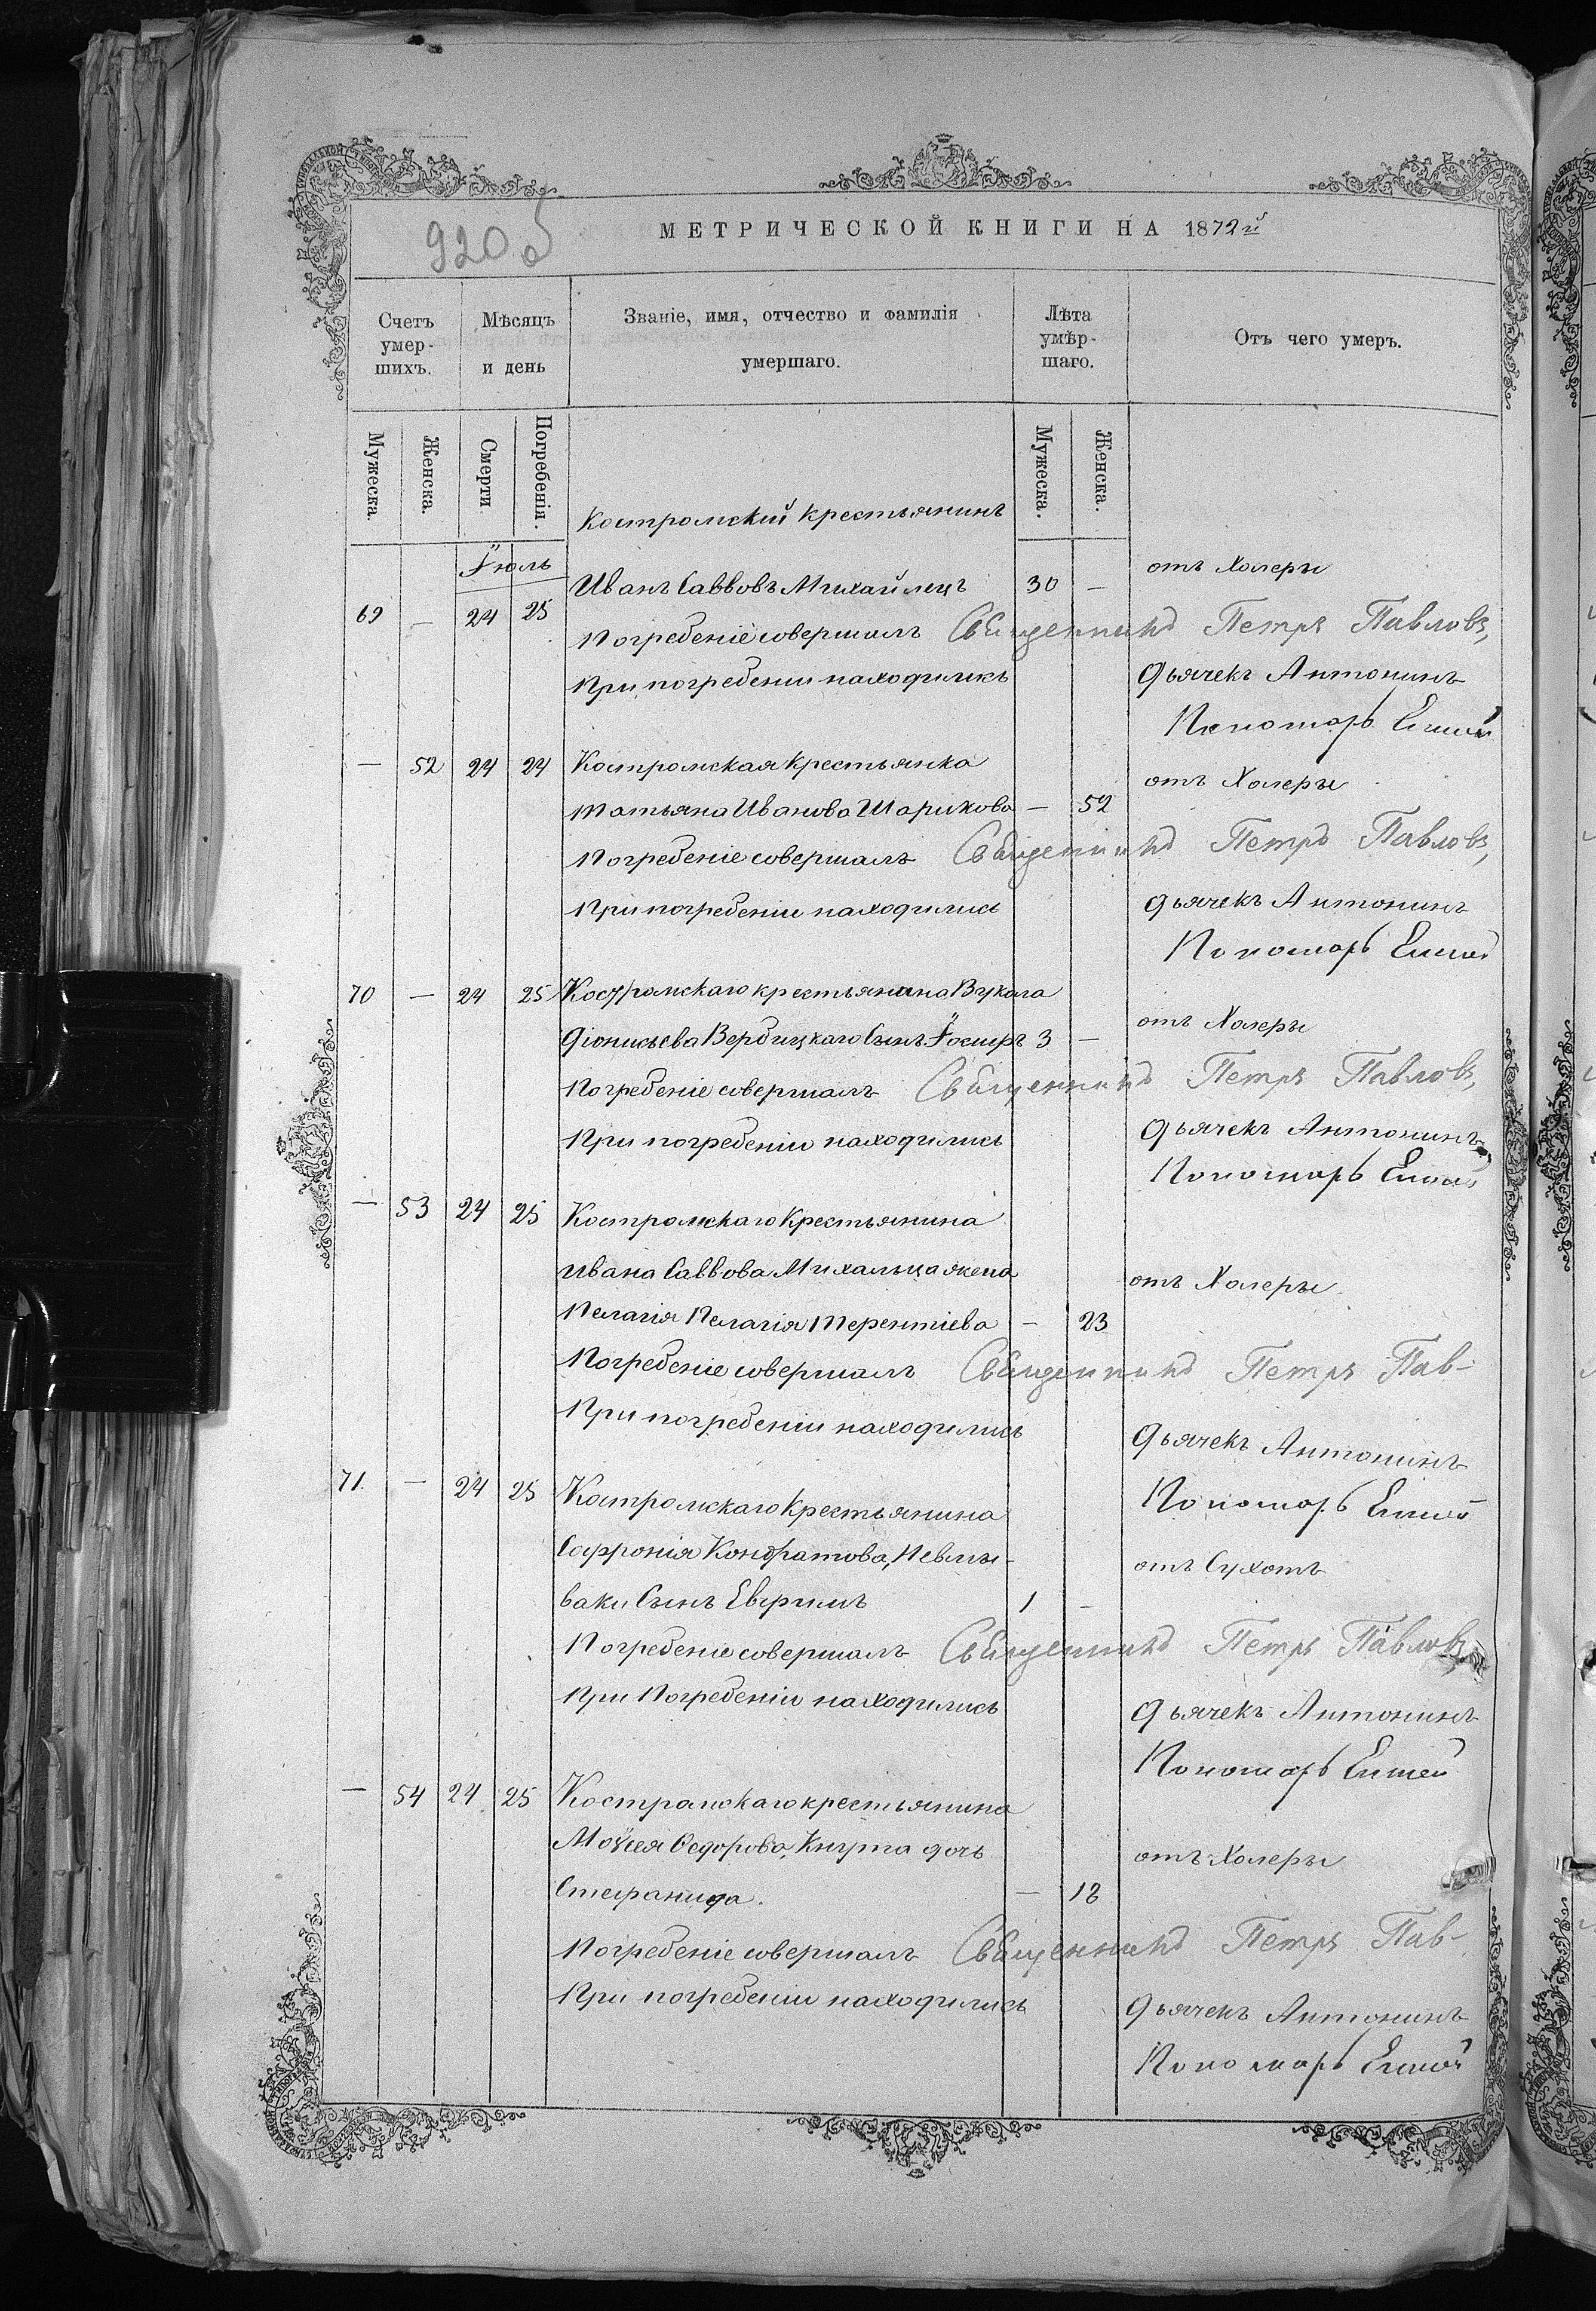 920 об
МЕТРИЧЕСКОЙ КНИГИ НА 1872й
Счетъ умер-шихъ.
Мѣсяцъ и день
Званіе, имя, отчество и фамилія умершаго.
Лѣта умѣр-шаго.
Отъ чего умеръ.
Мужеска.
Женска.
Смерти
Погребенія.
Мужеска.
Женска.
Костромский крестьянинъ
Іюль
Иванъ Саввовъ Михайлецъ 30 — отъ Холеры
69 — 24 25
Погребеніе совершалъ Священникъ Петръ Павловъ,
При погребении находились дьячекъ Антонинъ
Пономарь
— 52 24 24 Костромская крестьянка
Татьяна Иванова Шарикова — 52 отъ Холеры
Погребеніе совершалъ Священникъ Петръ Павловъ,
При погребеніи находились дьячекъ Антонинъ
Пономарь
70 — 24 25 Костромскаго крестьянина Вукола
Діонисьева Вербицкаго Сынъ Іосифъ 3 — отъ Холеры
Погребеніе совершалъ Священникъ Петръ Павловъ,
При погребеніи находились дьячекъ Антонинъ
Пономарь
— 53 24 25 Костромскаго Крестьянина
Ивана Саввова Михальца жена отъ Холеры
Пелагія Пелагія Терентіева — 23
Погребеніе совершалъ Священникъ Петръ Пав-
При погребеніи находились дьячекъ Антонинъ
71. — 24 25 Костромскаго Крестьянина
Пономарь
Софронія Кондратова, Невлы- отъ Сухотъ
ваки Сынъ Евфимъ 1 —
Погребеніе совершалъ Священникъ Петръ Павловъ
При Погребеніи находились дьячекъ Антонинъ
Пономарь
— 54 24 25 Костромскаго крестьянина
Моѵсея Ѳедорова, Кнута дочь отъ Холеры
Стефанида. — 12
Погребеніе совершалъ Священникъ Петръ Пав-
При погребеніи находились дьячекъ Антонинъ
Пономарь